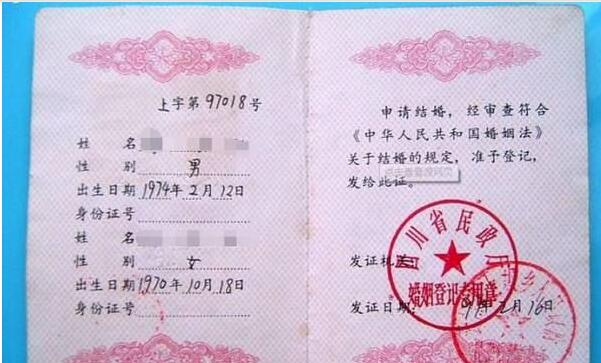 上字第97018号
姓 名
性 别 男
出生日期 1974年2月12日
身份证号
姓 名
性 别 女
出生日期 1970年10月18日
身份证号
申请结婚，经审查符合
《中华人民共和国婚姻法》
关于结婚的规定，准予登记，
发给此证。
发证机关:
四川省民政厅
婚姻登记专用章
发证日期: 年2月16日